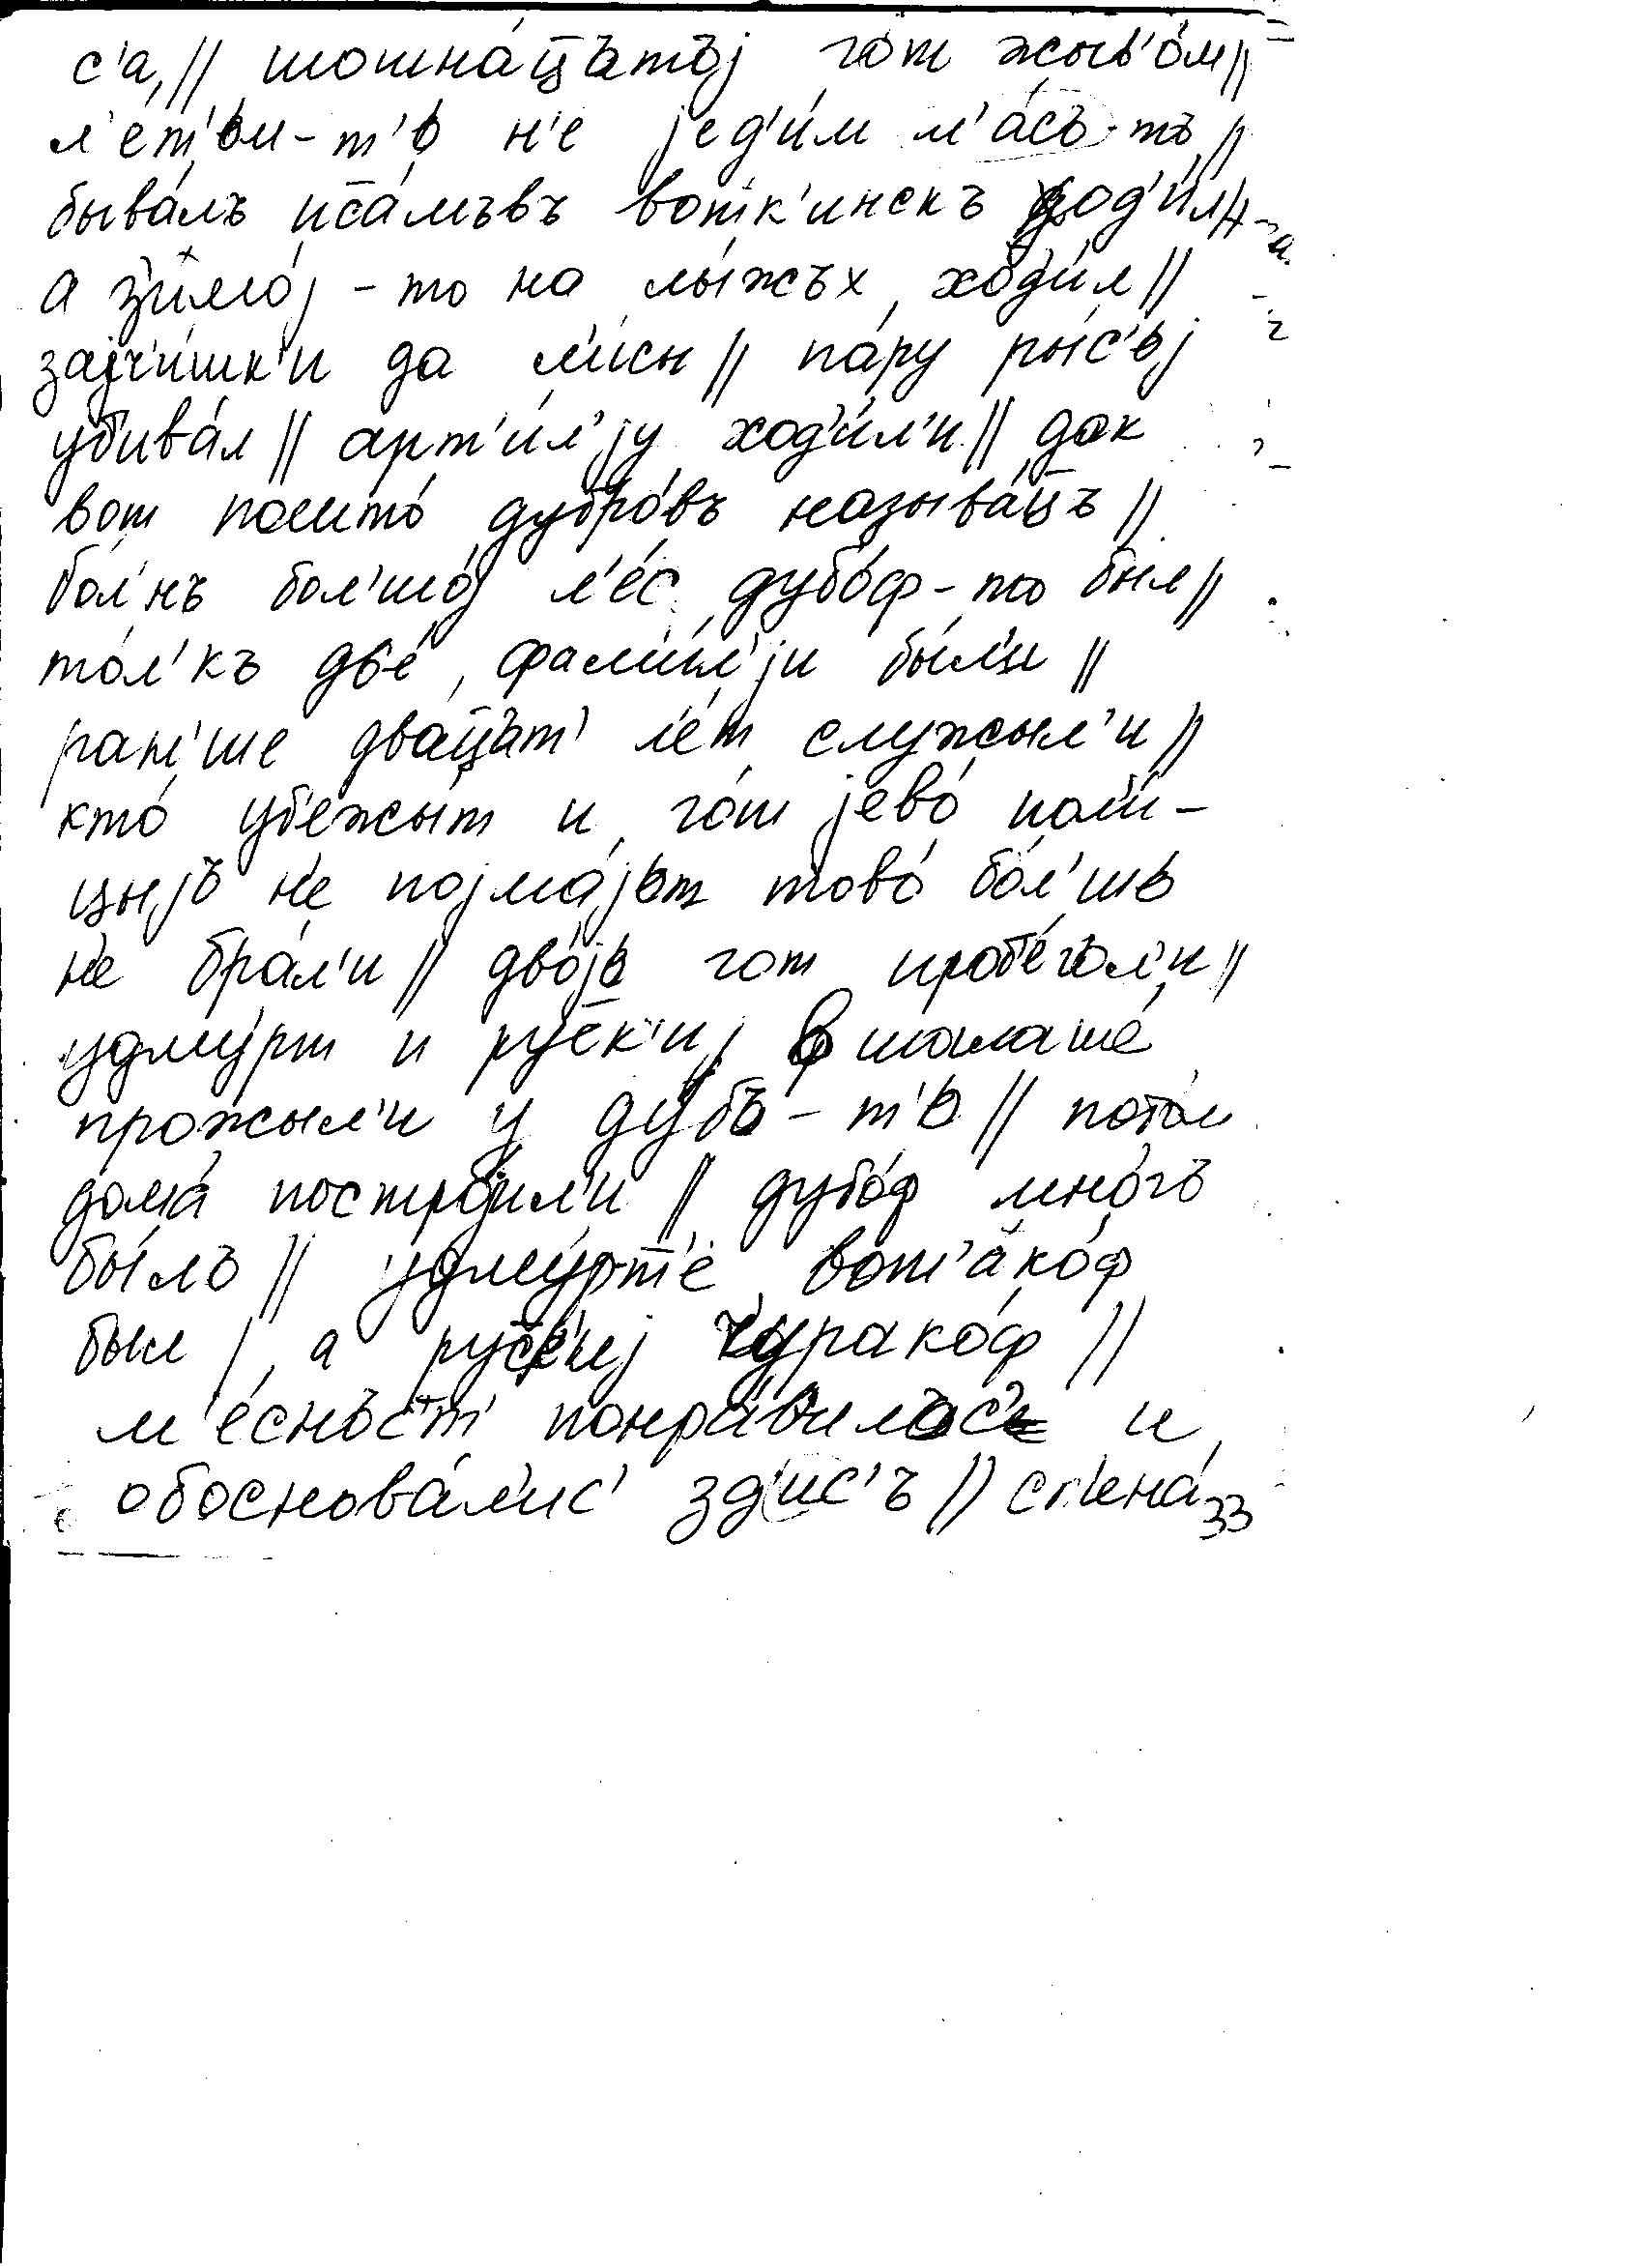 с'а, // шошна́цътъј го́т жыв'о́м //
л'е́т'ьм-т'ь н'е јед'и́м м'а́съ-тъ //
быва́лъ иса́мъвъ вотк'инскъ ход'и́л //
а з'имо́ј-то на лы́жъх ход'и́л //
зајч'и́шк'и да л'исы // па́ру ры́с'ьј
уб'ива́л // арт'и́л'ју ход'и́л'и // дак
вот пошто́ дубро́въ называ́цъ //
бо́л'нъ бол'шо́ј л'е́с дубо́ф-то был //
то́л'къ две́ фам'и́л'ји бы́л'и //
ран'ше два́цът' л'е́т служыл'и //
кто́ уб'ежы́т и го́т јево́ пол'и-
цыјъ н'е појма́јьт тово́ бо́л'шь
н'е бра́л'и // дво́јь гот проб'е́гъл'и //
удму́рт и ру́ск'иј в шалаше́
прожыл'и у ду́бъ-т'ь // пото́м
дома́ постро́јил'и // дубо́ф мно́гъ
бы́лъ // удму́рт'е вот'ако́ф
был / а ру́ск'иј чурако́ф //
м'е́снъст' понра́в'илъс' и
обоснова́л'ис' зд'ис'ъ // ст'ена́
33